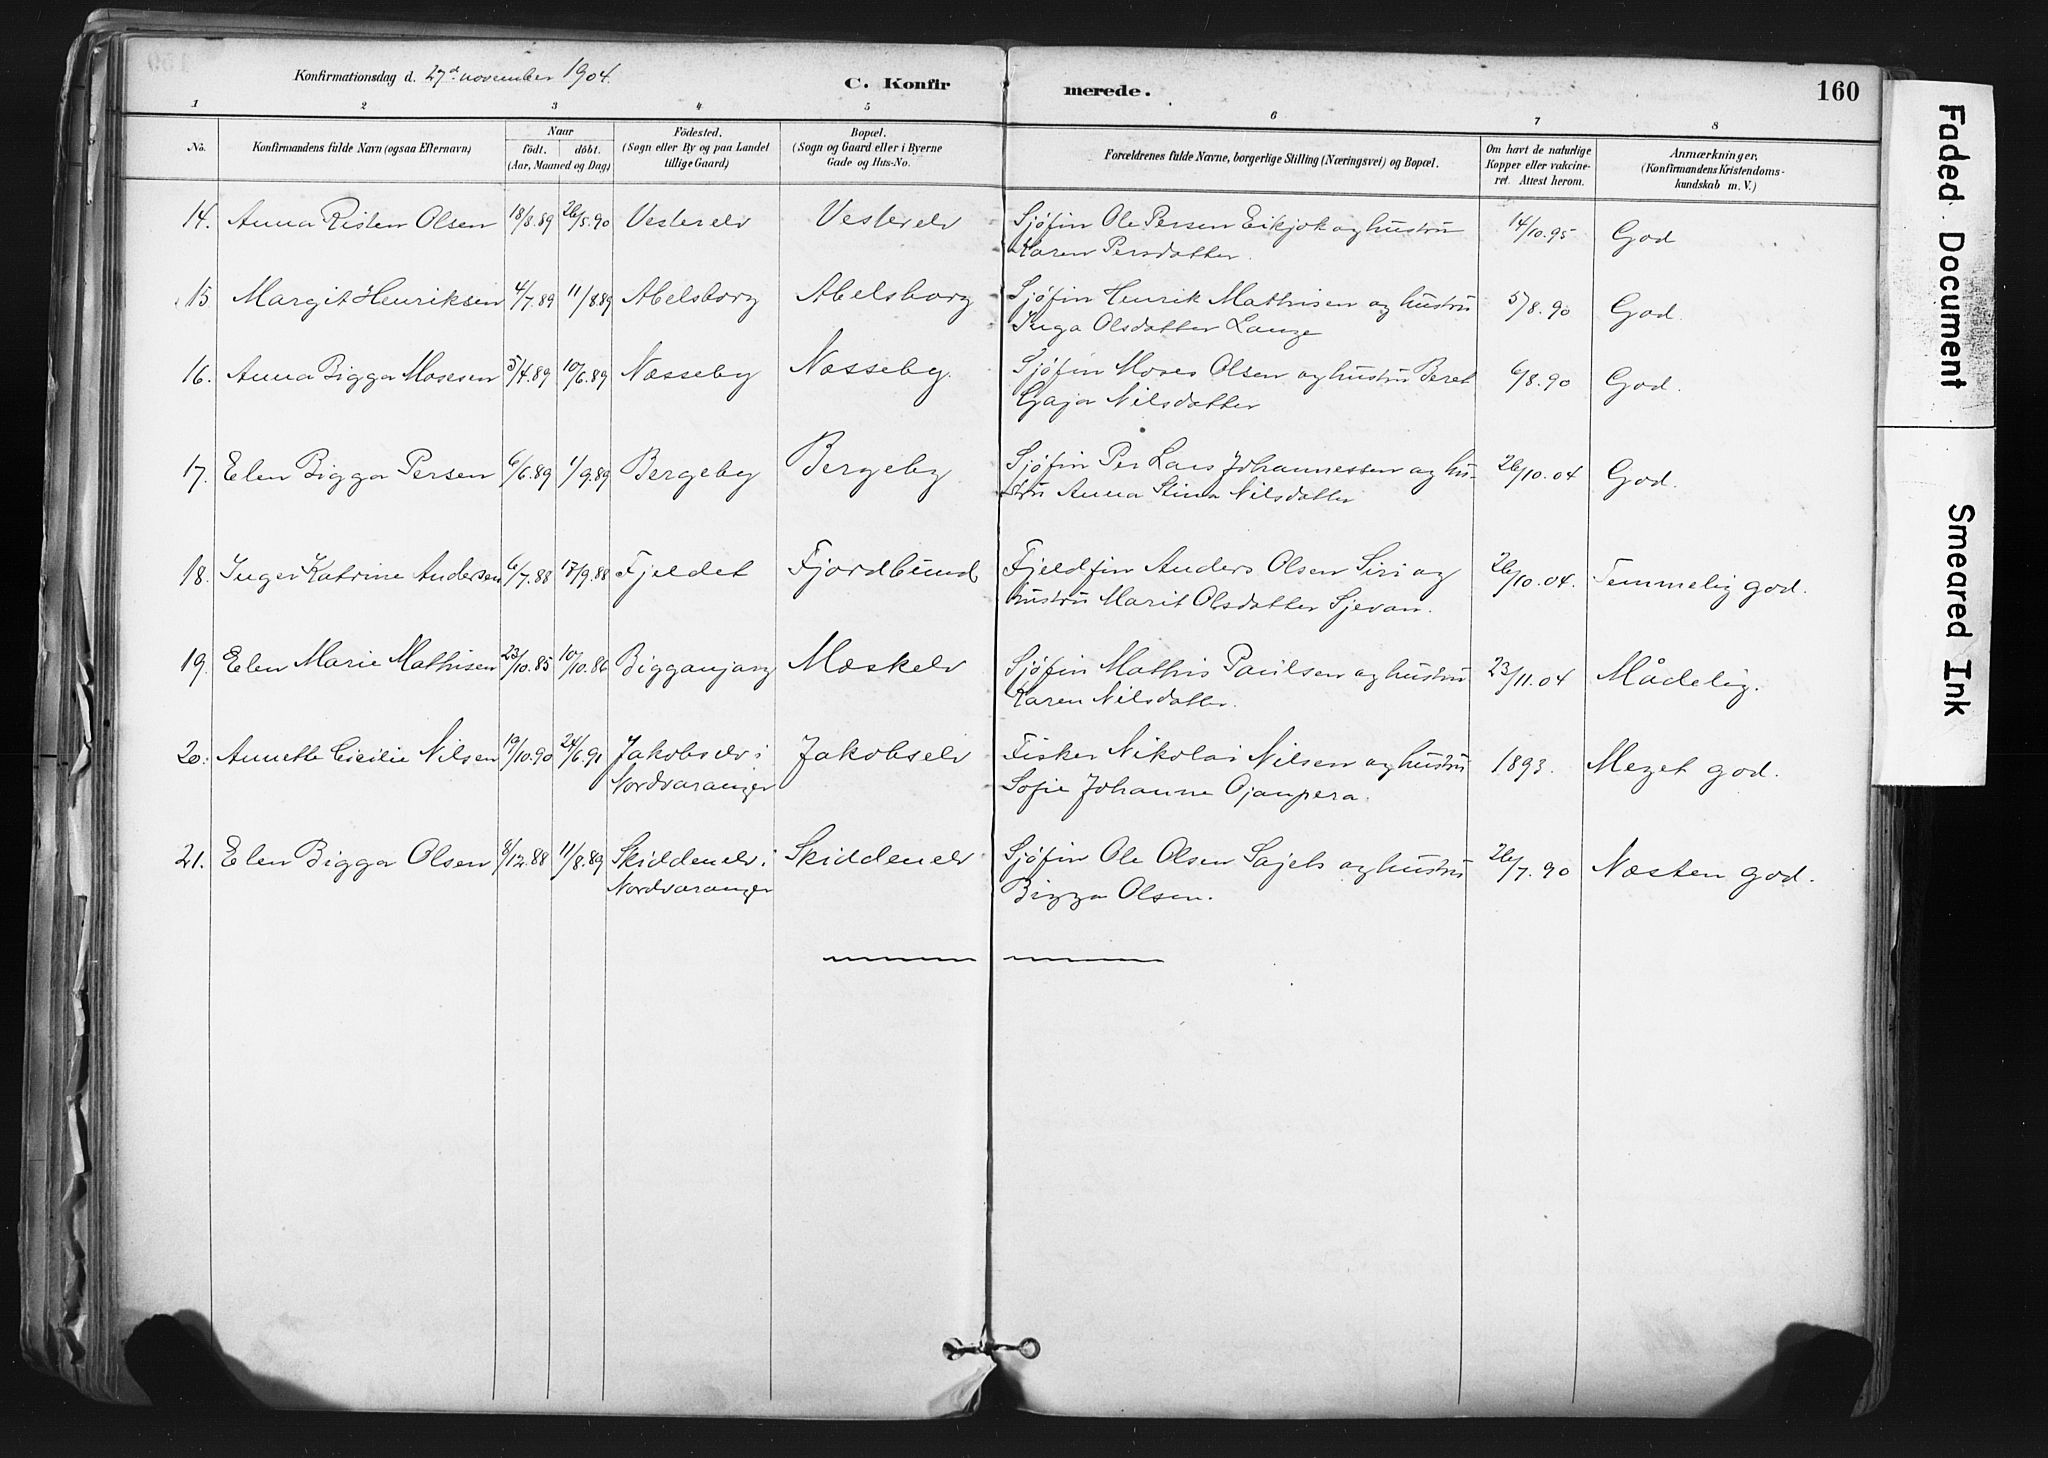 Konfirmationsdag d. 27de november 1904.
C. Konfirmerede.
160
1 2 3 4 5 6 7 8
No.
Konfirmandens fulde Navn (ogsaa Efternavn)
Naar
födt. döbt.
(Aar, Maaned og Dag)
Födested.
(Sogn eller By og paa Landet
tillige Gaard)
Bopæl.
(Sogn og Gaard eller i Byerne
Gade og Hus-No.
Forældrenes fulde Navne, borgerlige Stilling (Næringsvei) og Bopæl.
Om havt de naturlige
Kopper eller vakcine-
ret. Attest herom.
Anmærkninger,
(Konfirmandens Kristendoms-
kundskab m. V.)
14. Anna Risten Olsen 18/8.89 26/5.90 Vesterelv Vesterelv Sjøfin Ole Persen Eikjok og hustru 14/10.95 God
Karen Persdatter.
15 Margit Henriksen 4/7.89 11/8.89 Abelsborg Abelsborg Sjøfin Henrik Mathisen og hustru 5/8.90 God.
Inga Olsdatter Lange
16. Anna Bigga Mosesen 5/4.89 10/6.89 Næsseby Næsseby. Sjøfin Moses Olsen og hustru Beret 6/8.90 God.
Gaja Nilsdatter
17. Elen Bigga Persen 6/6.89 1/9.89 Bergeby Bergeby Sjøfin Per Lars Johannessen og hu- 26/10.04 God.
stru Anna Stina Nilsdatter
18. Inger Katrine Andersen 6/7.88 17/9.88 Fjeldet Fjordbund Fjeldfin Anders Olsen Siri og 26/10.04. Temmelig god.
hustru Marit Olsdatter Sjevan.
19. Elen Marie Mathisen 23/10.85 10/10.86 Bigganjarg Mæskelv Sjøfin Mathis Paulsen og hustru 23/11.04 Mådelig.
Karen Nilsdatter.
20. Annette Cicilie Nilsen 19/10.90 24/6.91 Jakobselv i Jakobselv Fisker Nikolai Nilsen og hustru 1893. Meget god.
Nordvaranger Sofie Johanne Ojanpera.
21. Elen Bigga Olsen 8/12.88 11/8.89 Skiddenelv i Skiddenelv Sjøfin Ole Olsen Sajets og hustru 26/7.90 Næsten god.
Nordvaranger Bigga Olsen.
Faded Document
Smeared Ink